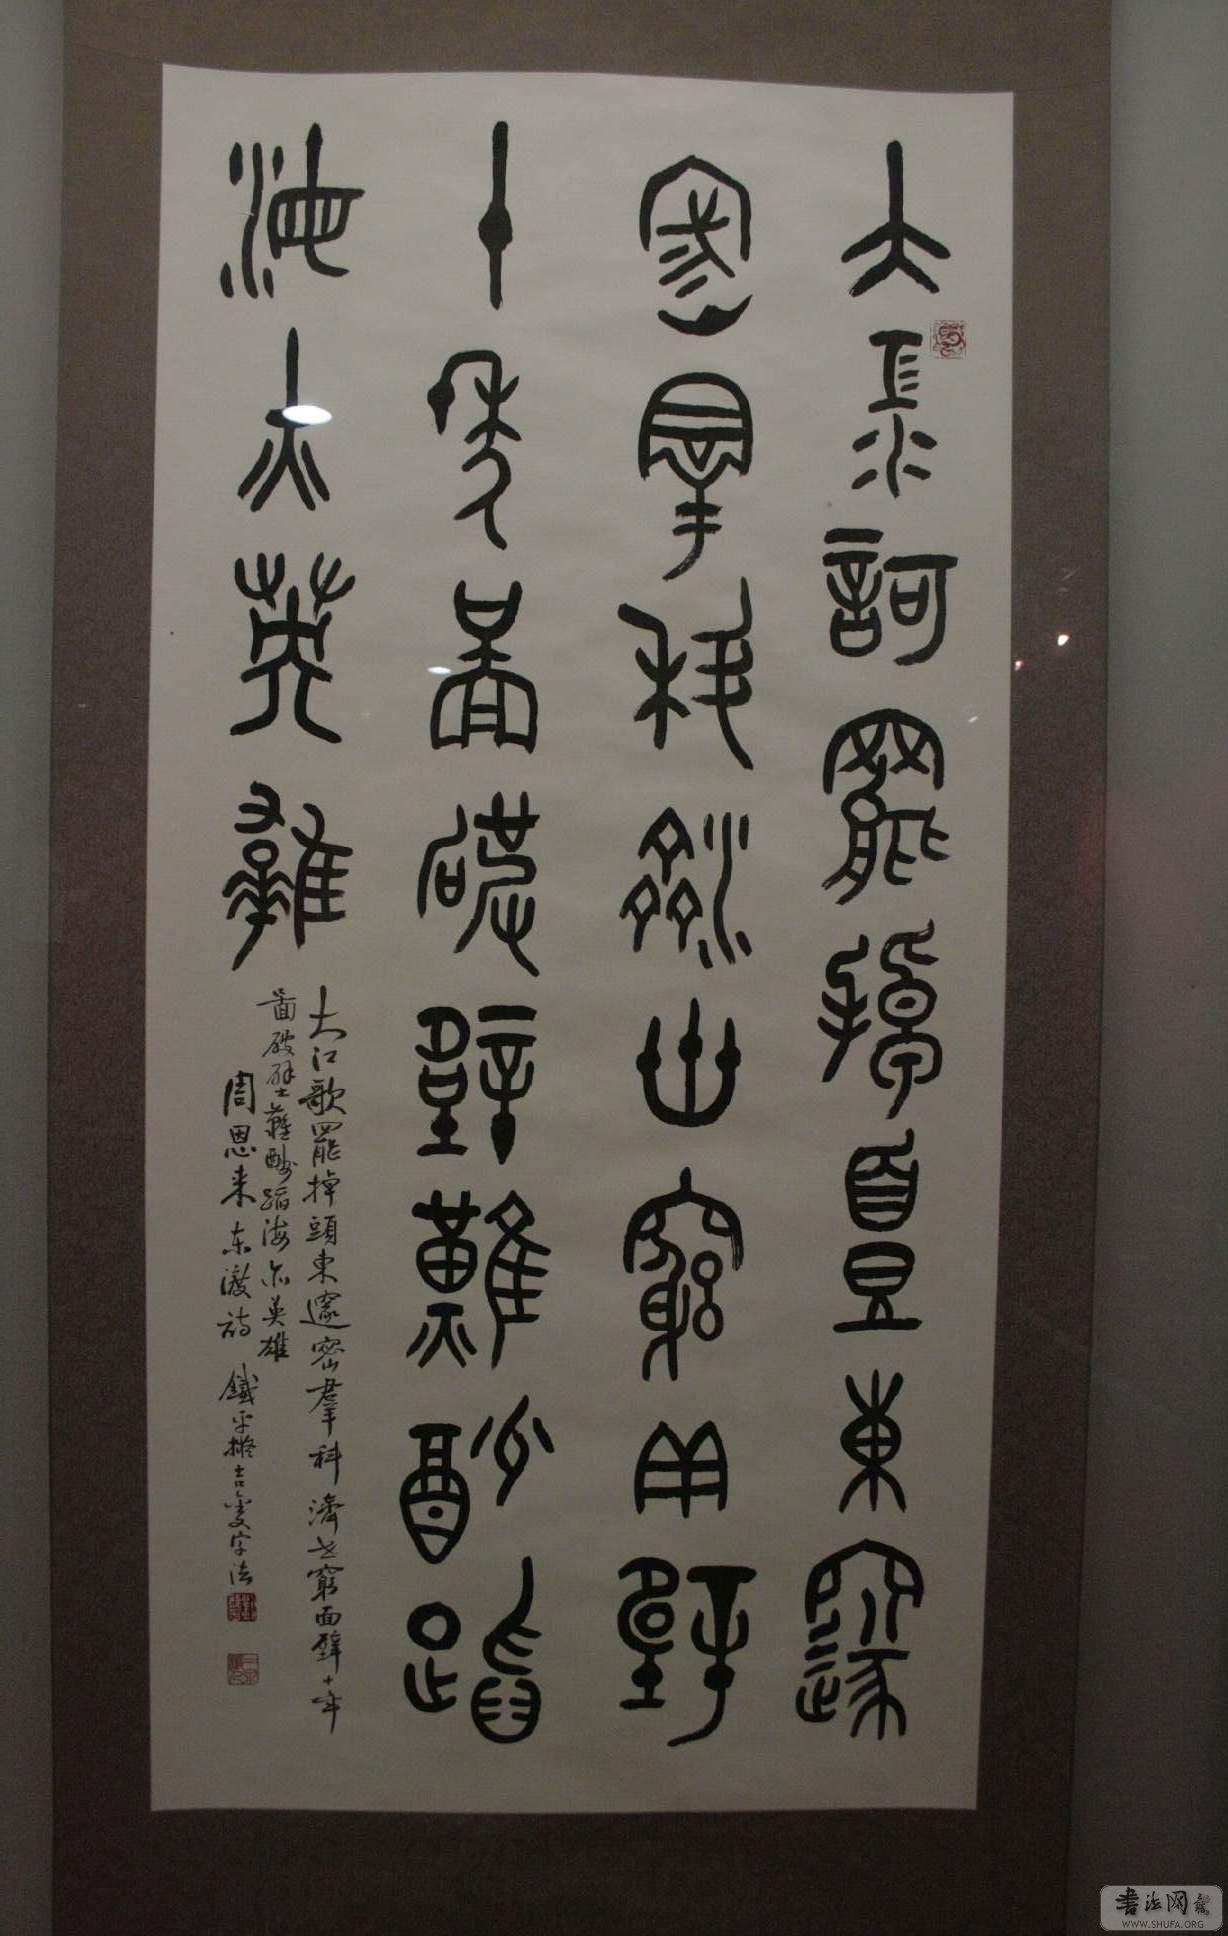 大江歌罷掉頭東邃
密羣科濟世窮面壁
十年圖破壁難酬蹈
海亦英雄
大江歌罷掉頭東邃密羣科濟世窮面壁十年
啚破壁難酬蹈海亦英雄
周恩来东渡詩 鐵平擬古 字法
书法网
WWW.SHUFA.ORG